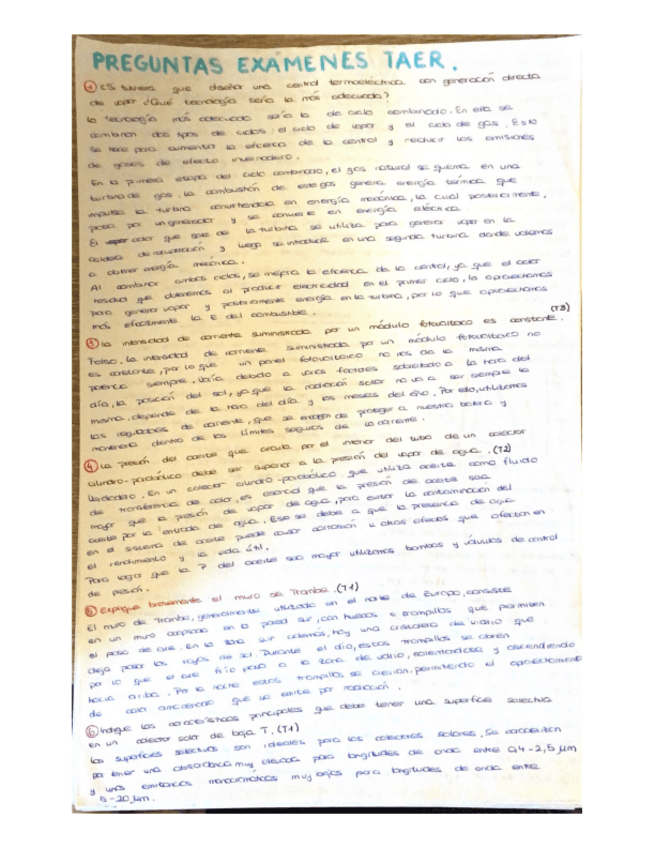 PREGUNTAS EXÁMENES TAER.
① ¿Si tuviera que diseñar una central termoeléctrica con generación directa
de vapor ¿Qué tecnología sería la más adecuada?
la tecnología más adecuada sería la de ciclo combinado. En ella se
combinan dos tipos de ciclos: el ciclo de vapor y el ciclo de gas. Esto
se hace para aumentar la eficiencia de la central y reducir las emisiones
de gases de efecto invernadero.
En la primera etapa del ciclo combinado, el gas natural se quema en una
turbina de gas. La combustión de este gas genera energía térmica que
impulsa la turbina convirtiendola en energía mecánica, la cual posteriormente,
pasa por un generador y se convierte en energía eléctrica.
El calor que sale de la turbina se utiliza para generar vapor en la
caldera de recuperación y luego se introduce en una segunda turbina donde volvemos
a obtener energía mecánica.
Al combinar ambos ciclos, se mejora la eficiencia de la central, ya que el calor
residual que obtenemos al producir electricidad en el primer ciclo, lo aprovechamos
para generar vapor y posteriormente energía en la turbina, por lo que aprovechamos
más eficientemente la E del combustible.
③ la intensidad de corriente suministrada por un módulo fotovoltaico es constante. (T3)
Falso. la intensidad de corriente suministrada por un módulo fotovoltaico no
es constante, por lo que un panel fotovoltaico no nos da la misma
potencia siempre. Varía debido a varios factores sobretodo a la hora del
día, la posición del sol, ya que la radiación solar no va a ser siempre la
misma, depende de la hora del día y los meses del año. Por ello, utilizamos
los reguladores de corriente, que se encargan de proteger a nuestra batería y
mantenerla dentro de los límites seguros de la corriente.
④ La presión del aceite que circula por el interior del tubo de un colector
cilindro-parabólico debe ser superior a la presión del vapor de agua. (T2)
Verdadero. En un colector cilindro-parabólico que utiliza aceite como fluido
de transferencia de calor, es esencial que la presión de aceite sea
mayor que la presión de vapor de agua, para evitar la contaminación del
aceite por la entrada de agua. Eso se debe a que la presencia de agua
en el sistema de aceite puede causar corrosión u otros efectos que afectan en
el rendimiento y la vida útil.
Para lograr que la P del aceite sea mayor utilizamos bombas y válvulas de control
de presión.
⑤ Explique brevemente el muro de Trombe. (T1)
El muro de Trombe, generalmente utilizado en el norte de Europa, consiste
en un muro acoplado en la pared sur, con huecos o trampillas que permiten
el paso de aire. En la zona sur además, hay una cristalera de vidrio que
deja pasar los rayos de sol. Durante el día, estas trampillas se abren
por lo que el aire frío pasa a la zona de vidrio, calentandose y ascendiendo
hacia arriba. Por la noche estas trampillas se cierran, permitiendo el aprovechamiento
de calor almacenado que se emite por radiación.
⑥ Indique las características principales que debe tener una superficie selectiva
en un colector solar de baja T. (T1)
las superficies selectivas son ideales para los colectores solares, se caracterizan
por tener una absortancia muy elevada para longitudes de onda entre 0,4-2,5 μm
y unas emitancias monocromáticas muy bajas para longitudes de onda entre
5-20 μm.